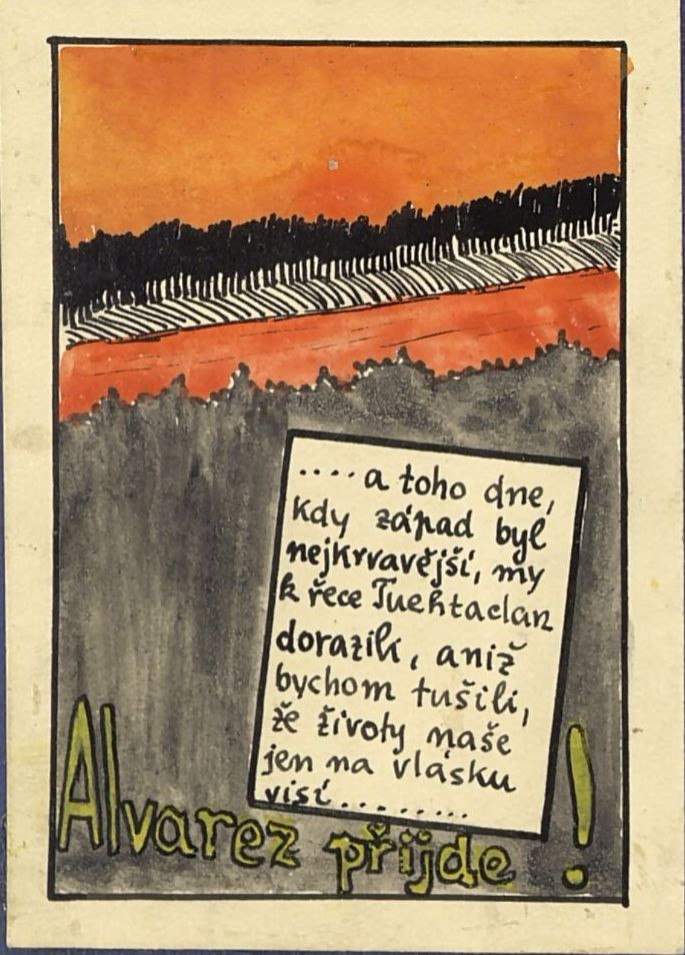 ....a toho dne,
kdy západ byl
nejkrvavější, my
k řece Tuehtaclan
dorazili, aniž
bychom tušili,
že životy naše
jen na vlásku
visí.........
Alvarez přijde!